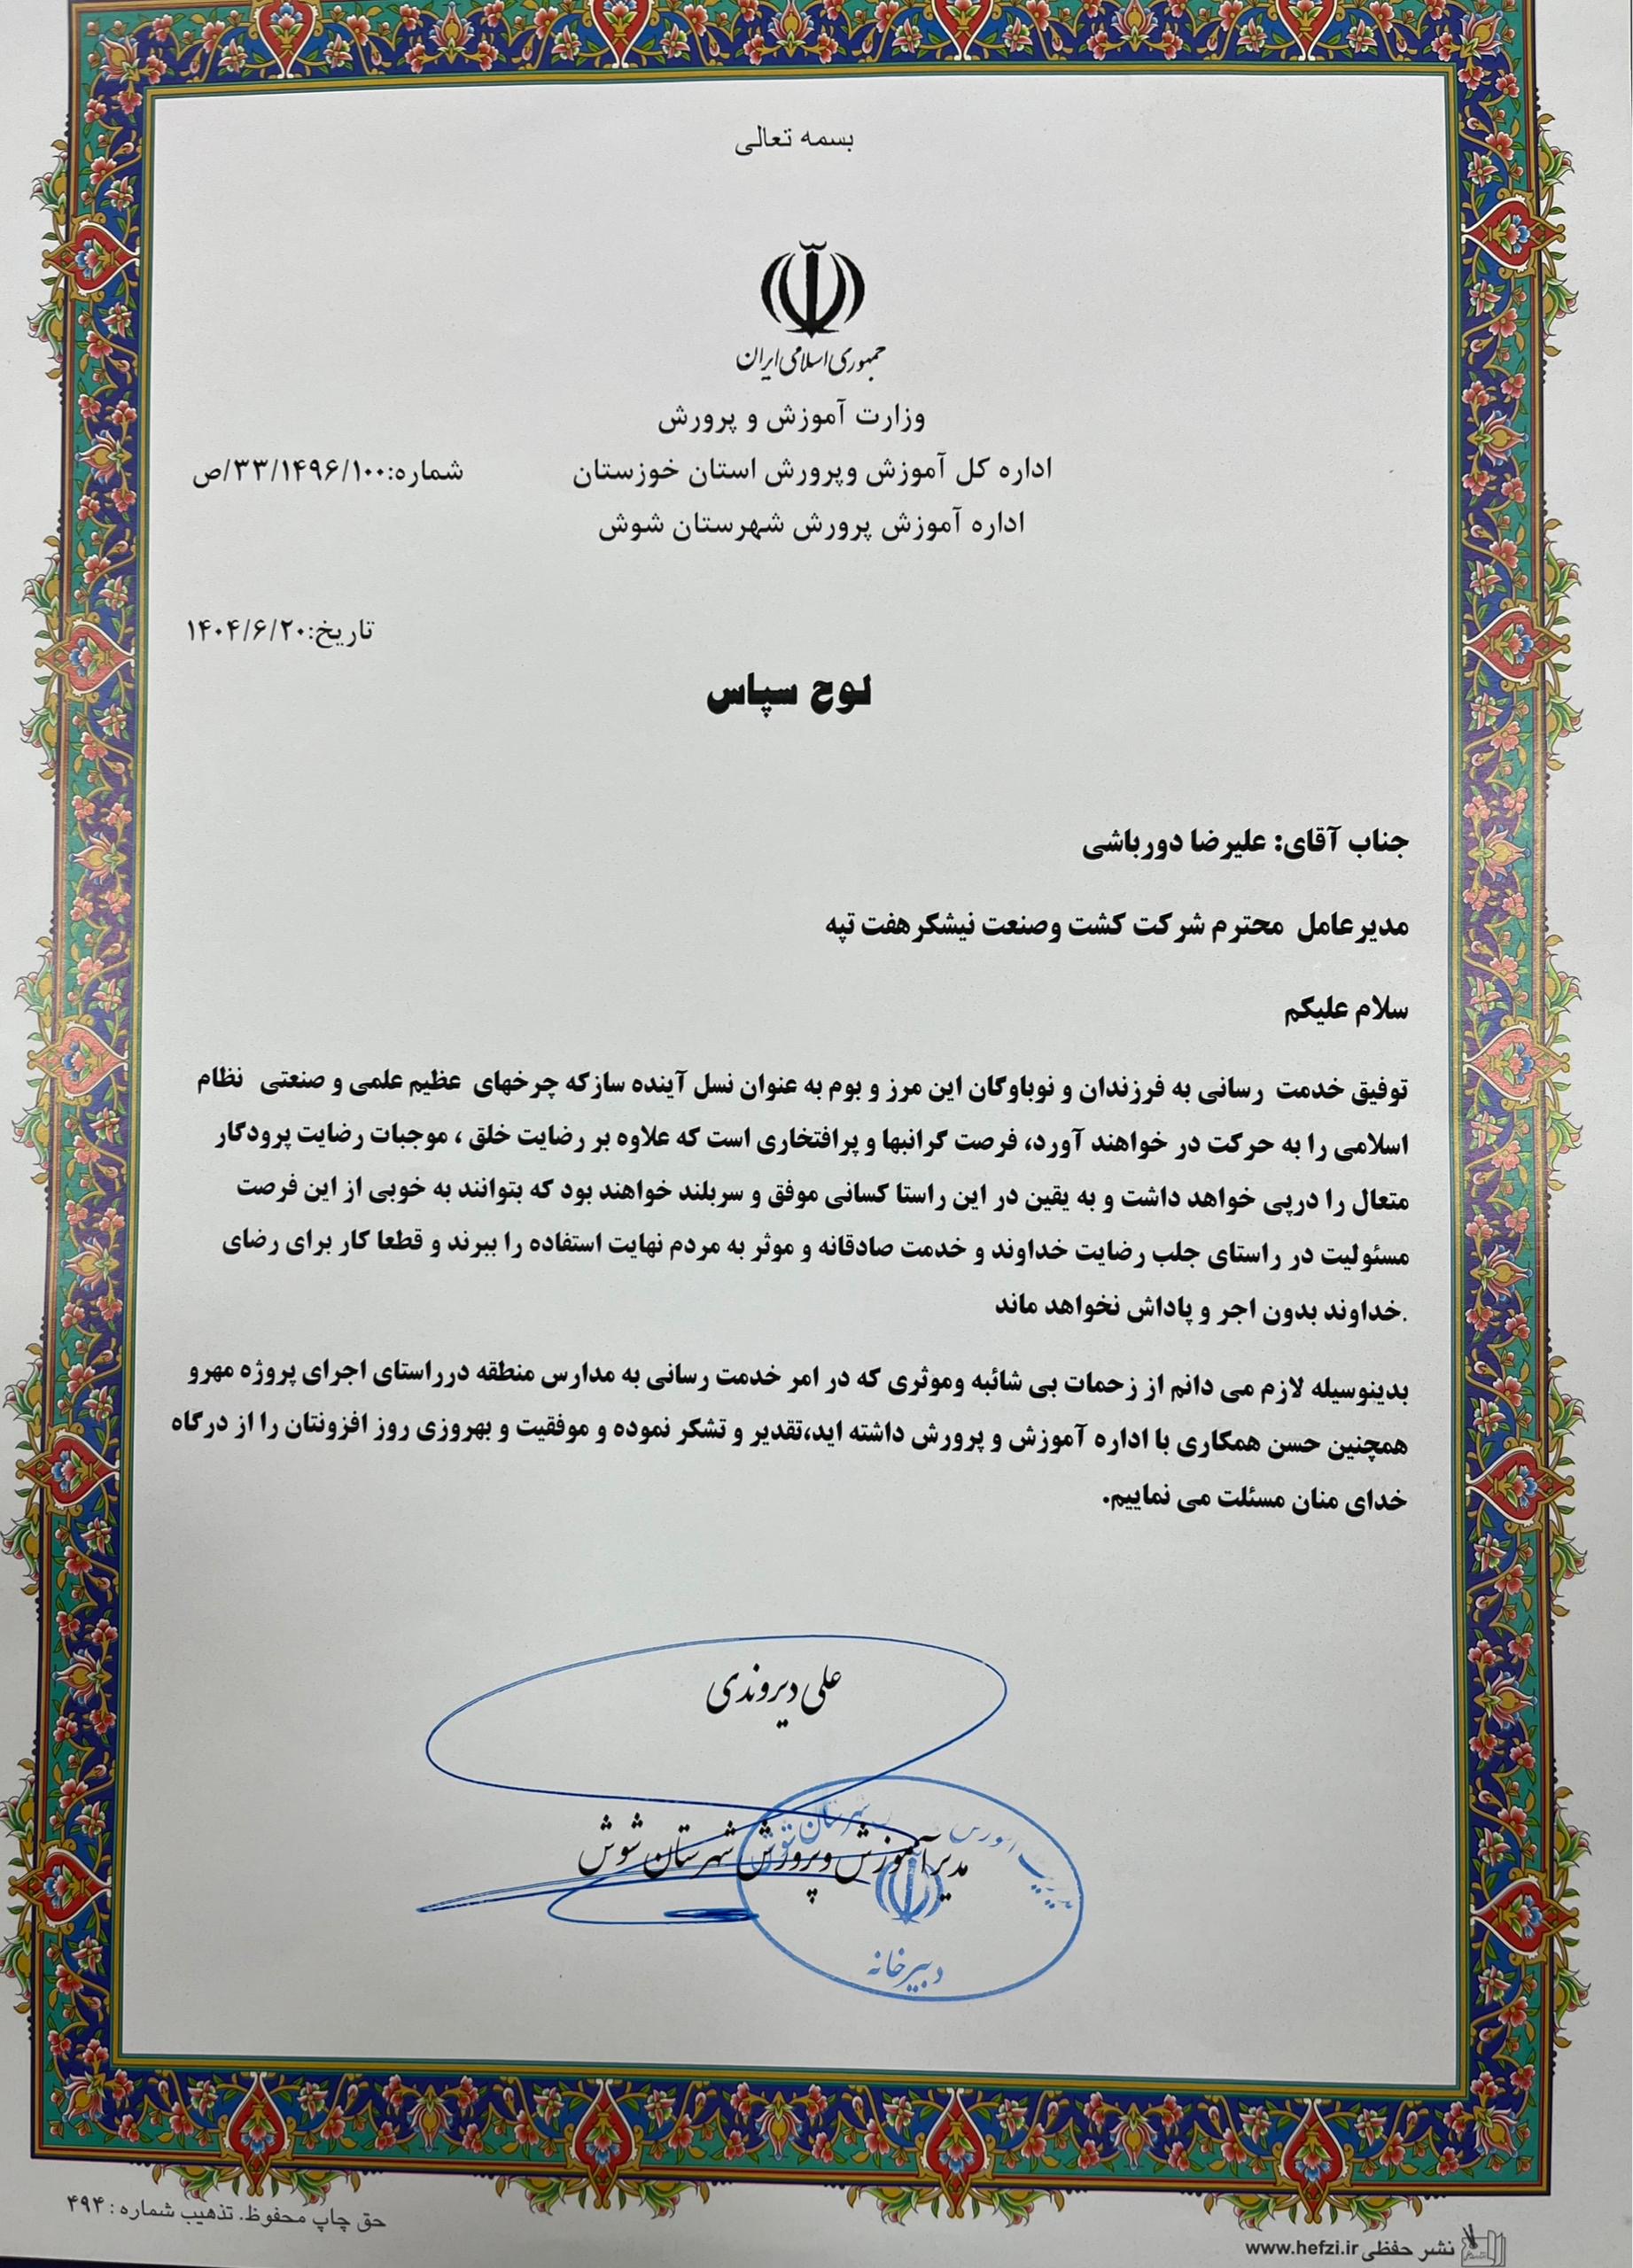 بسمه تعالی
جمهوری اسلامی ایران
وزارت آموزش و پرورش
اداره کل آموزش وپرورش استان خوزستان
شماره:۳۳/۱۴۹۶/۱۰۰/ص
اداره آموزش پرورش شهرستان شوش
تاریخ:۱۴۰۴/۶/۲۰
لوح سپاس
جناب آقای: علیرضا دورباشی
مدیرعامل محترم شرکت کشت وصنعت نیشکر هفت تپه
سلام علیکم
توفیق خدمت رسانی به فرزندان و نوباوگان این مرز و بوم به عنوان نسل آینده سازکه چرخهای عظیم علمی و صنعتی نظام
اسلامی را به حرکت در خواهند آورد، فرصت گرانبها و پرافتخاری است که علاوه بر رضایت خلق ، موجبات رضایت پرودگار
متعال را درپی خواهد داشت و به یقین در این راستا کسانی موفق و سربلند خواهند بود که بتوانند به خوبی از این فرصت
مسئولیت در راستای جلب رضایت خداوند و خدمت صادقانه و موثر به مردم نهایت استفاده را ببرند و قطعا کار برای رضای
.خداوند بدون اجر و پاداش نخواهد ماند
بدینوسیله لازم می دانم از زحمات بی شائبه وموثری که در امر خدمت رسانی به مدارس منطقه درراستای اجرای پروژه مهرو
همچنین حسن همکاری با اداره آموزش و پرورش داشته اید،تقدیر و تشکر نموده و موفقیت و بهروزی روز افزونتان را از درگاه
خدای منان مسئلت می نماییم.
علی دیروندی
مدیر آموزش و پرورش شهرستان شوش
شهرستان شوش
دبیرخانه
حق چاپ محفوظ. تذهیب شماره : ۴۹۴
نشر حفظی www.hefzi.ir